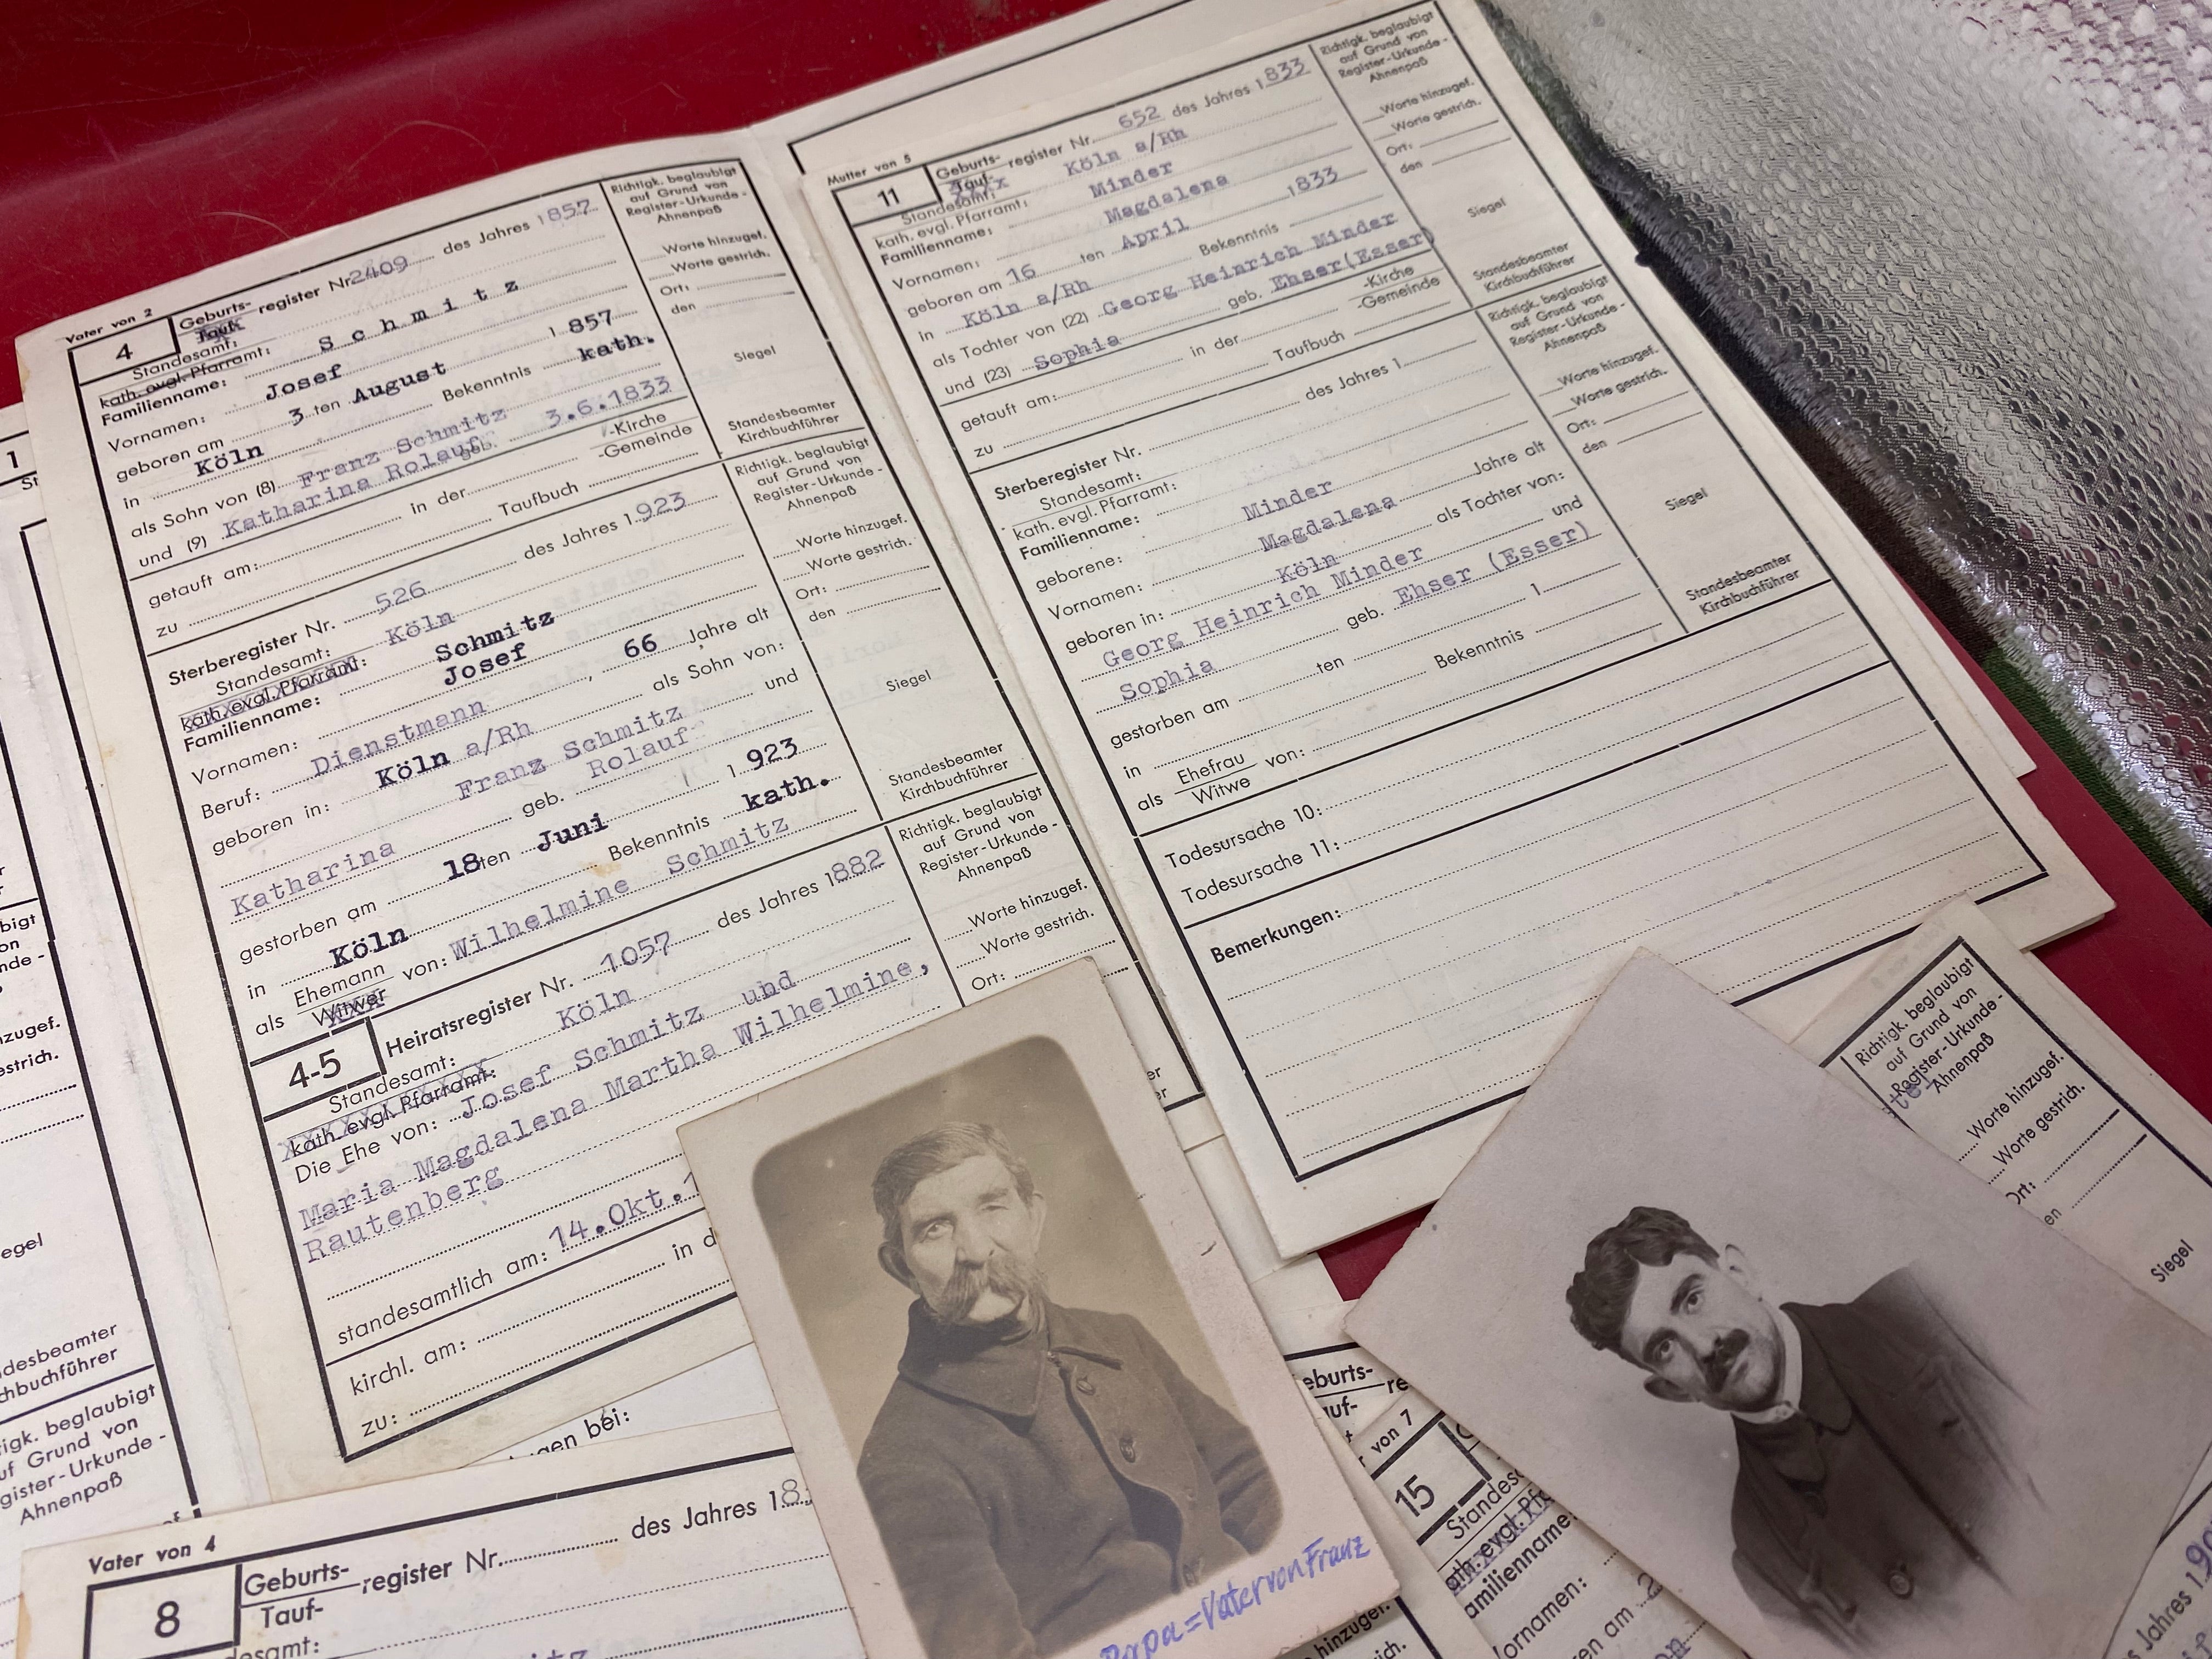 Vater von 2
4
Geburts-
Tauf-
register Nr. 2409 des Jahres 1857
Standesamt:
kath. evgl. Pfarramt:
Familienname: Schmitz
Vornamen: Josef
geboren am 3 ten August 1857
in Köln Bekenntnis kath.
als Sohn von (8) Franz Schmitz
und (9) Katharina Rolauf geb. 3.6.1833
getauft am: in der -Kirche
-Gemeinde
zu Taufbuch
Sterberegister Nr. 526 des Jahres 1923
Standesamt: Köln
kath. evgl. Pfarramt:
Familienname: Schmitz
Vornamen: Josef
Beruf: Dienstmann, 66 Jahre alt
geboren in: Köln a/Rh als Sohn von:
Franz Schmitz und
Katharina geb. Rolauf
gestorben am 18ten Juni 1923
in Köln Bekenntnis kath.
als Ehemann
Witwer
von: Wilhelmine Schmitz
4-5
Heiratsregister Nr. 1057 des Jahres 1882
Standesamt: Köln
kath. evgl. Pfarramt:
Die Ehe von: Josef Schmitz und
Maria Magdalena Martha Wilhelmine,
Rautenberg
standesamtlich am: 14.Okt.
kirchl. am: in d
zu:
Richtigk. beglaubigt
auf Grund von
Register-Urkunde-
Ahnenpaß
Worte hinzugef.
Worte gestrich.
Ort:
den
Siegel
Standesbeamter
Kirchbuchführer
Richtigk. beglaubigt
auf Grund von
Register-Urkunde-
Ahnenpaß
Worte hinzugef.
Worte gestrich.
Ort:
den
Siegel
Standesbeamter
Kirchbuchführer
Richtigk. beglaubigt
auf Grund von
Register-Urkunde-
Ahnenpaß
Worte hinzugef.
Worte gestrich.
Ort:
Mutter von 5
11
Geburts-
Tauf-
register Nr. 652 des Jahres 1833
Standesamt: Köln a/Rh
kath. evgl. Pfarramt:
Familienname: Minder
Vornamen: Magdalena
geboren am 16 ten April 1833
in Köln a/Rh Bekenntnis
als Tochter von (22) Georg Heinrich Minder
und (23) Sophia geb. Ehser(Esser)
getauft am: in der -Kirche
-Gemeinde
zu Taufbuch
Sterberegister Nr. des Jahres 1
Standesamt:
kath. evgl. Pfarramt:
Familienname:
geborene: Minder
Vornamen: Magdalena Jahre alt
geboren in: Köln als Tochter von:
Georg Heinrich Minder und
Sophia geb. Ehser (Esser)
gestorben am ten 1
in Bekenntnis
als Ehefrau
Witwe
von:
Todesursache 10:
Todesursache 11:
Bemerkungen:
Richtigk. beglaubigt
auf Grund von
Register-Urkunde-
Ahnenpaß
Worte hinzugef.
Worte gestrich.
Ort:
den
Siegel
Standesbeamter
Kirchbuchführer
Richtigk. beglaubigt
auf Grund von
Register-Urkunde-
Ahnenpaß
Worte hinzugef.
Worte gestrich.
Ort:
den
Siegel
Standesbeamter
Kirchbuchführer
Vater von 4
8
Geburts-
Tauf-
register Nr. des Jahres 18
desamt:
Papa=Vater von Franz
von 7
15
Richtigk. beglaubigt
auf Grund von
Register-Urkunde-
Ahnenpaß
Worte hinzugef.
Worte gestrich.
Ort:
Siegel